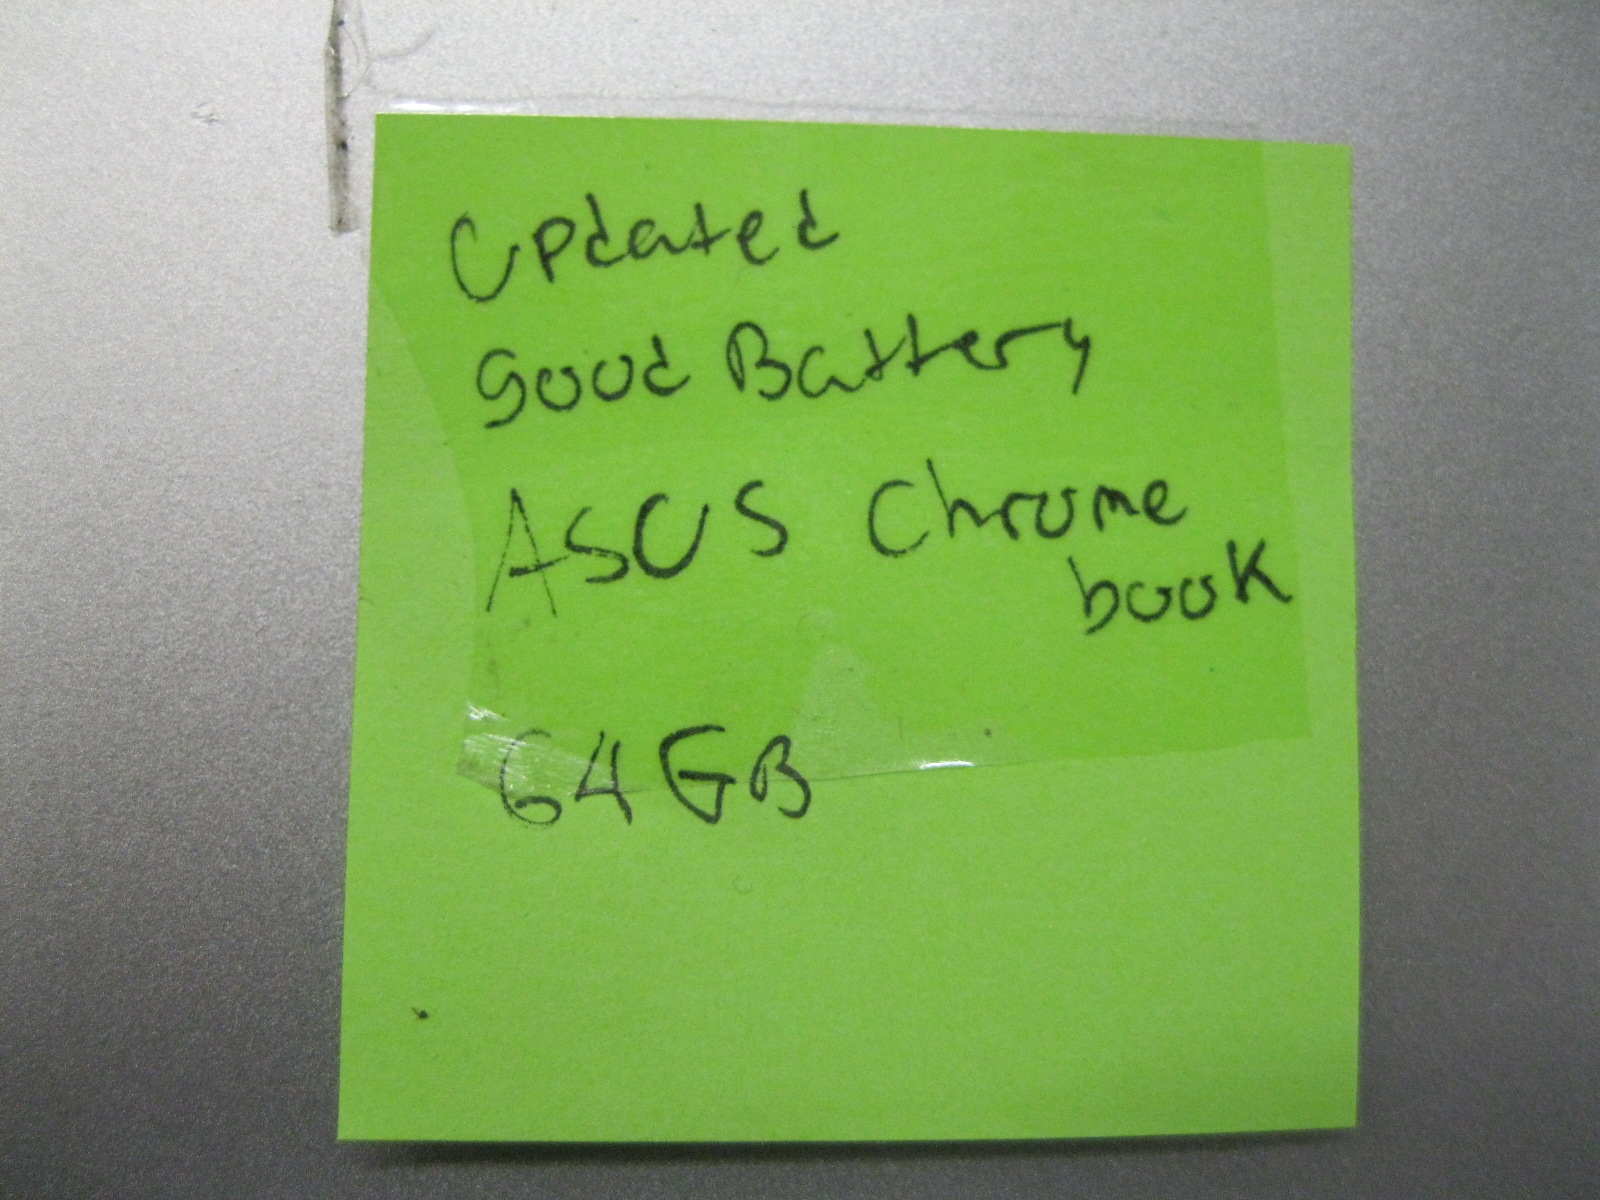 Updated
good Battery
ASUS Chrome
book
64GB